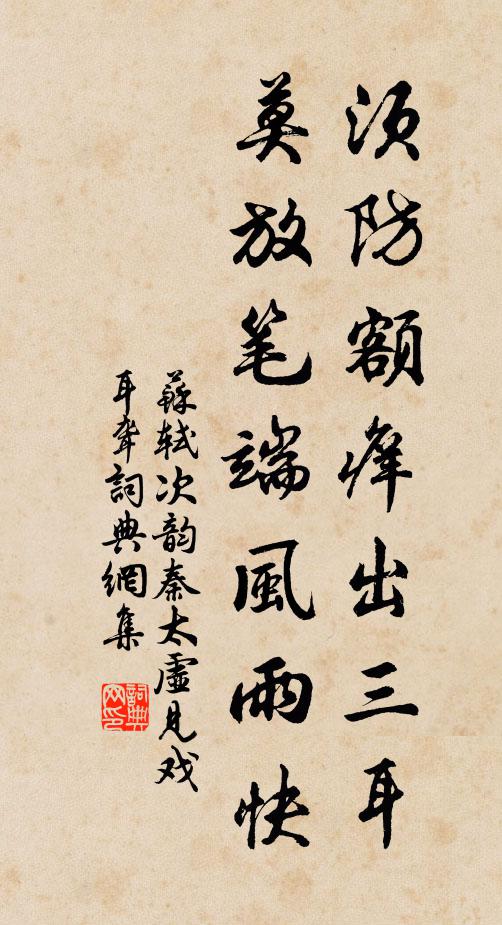 须防額癢出三耳
莫放笔端風雨快
蘇轼次韵秦太虛見戏
耳聋詞典網集
詞典网印